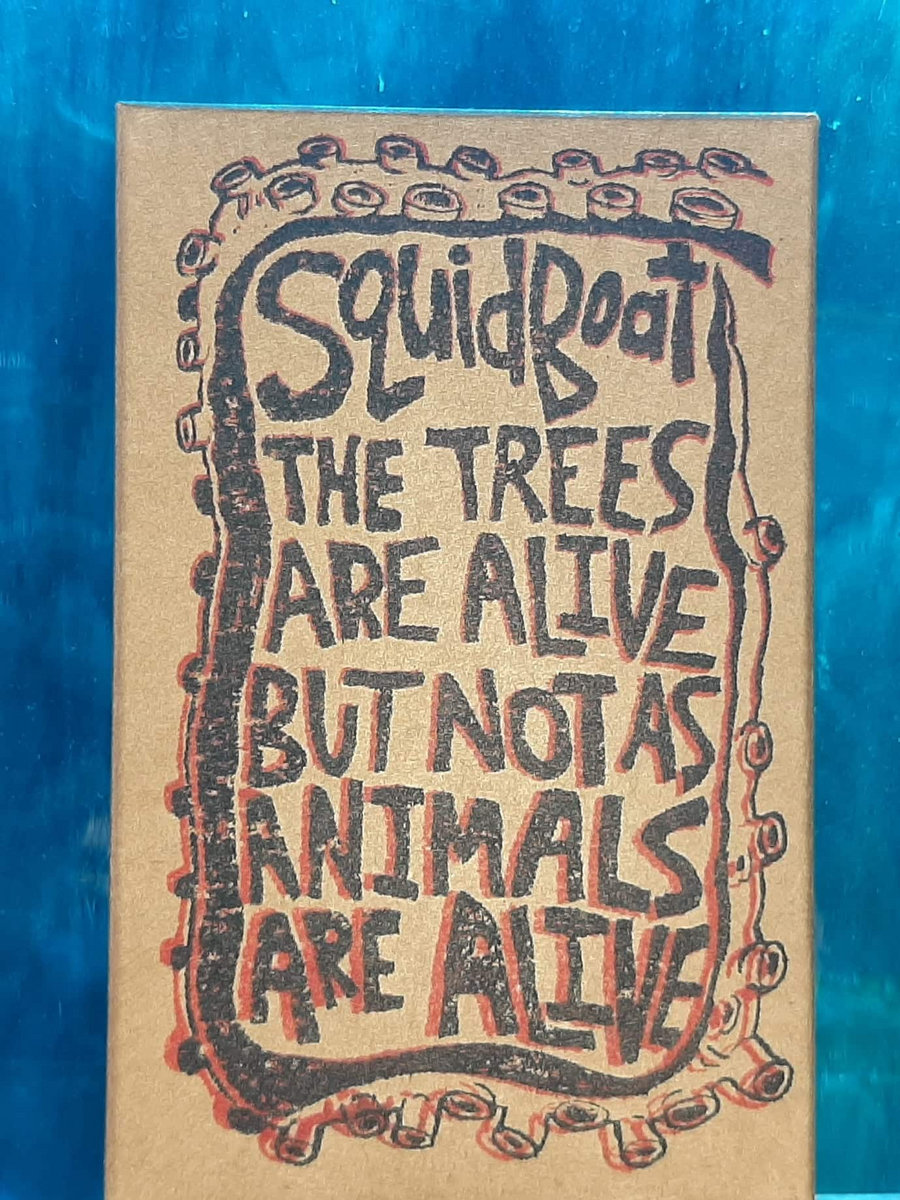 SquidBoat
THE TREES
ARE ALIVE
BUT NOT AS
ANIMALS
ARE ALIVE